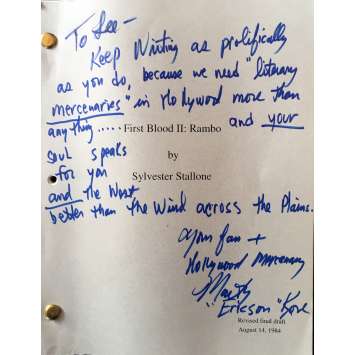 To Lee-
Keep Writing as prolifically
as you do, because we need "literary
mercenaries" in Hollywood more than
anything..... First Blood II: Rambo and your
soul speaks by
for you Sylvester Stallone
and the West
better than the Wind across the Plains.
Your fan +
Hollywood Mercenary
"Ericson" Kove
Revised final draft
August 14, 1984